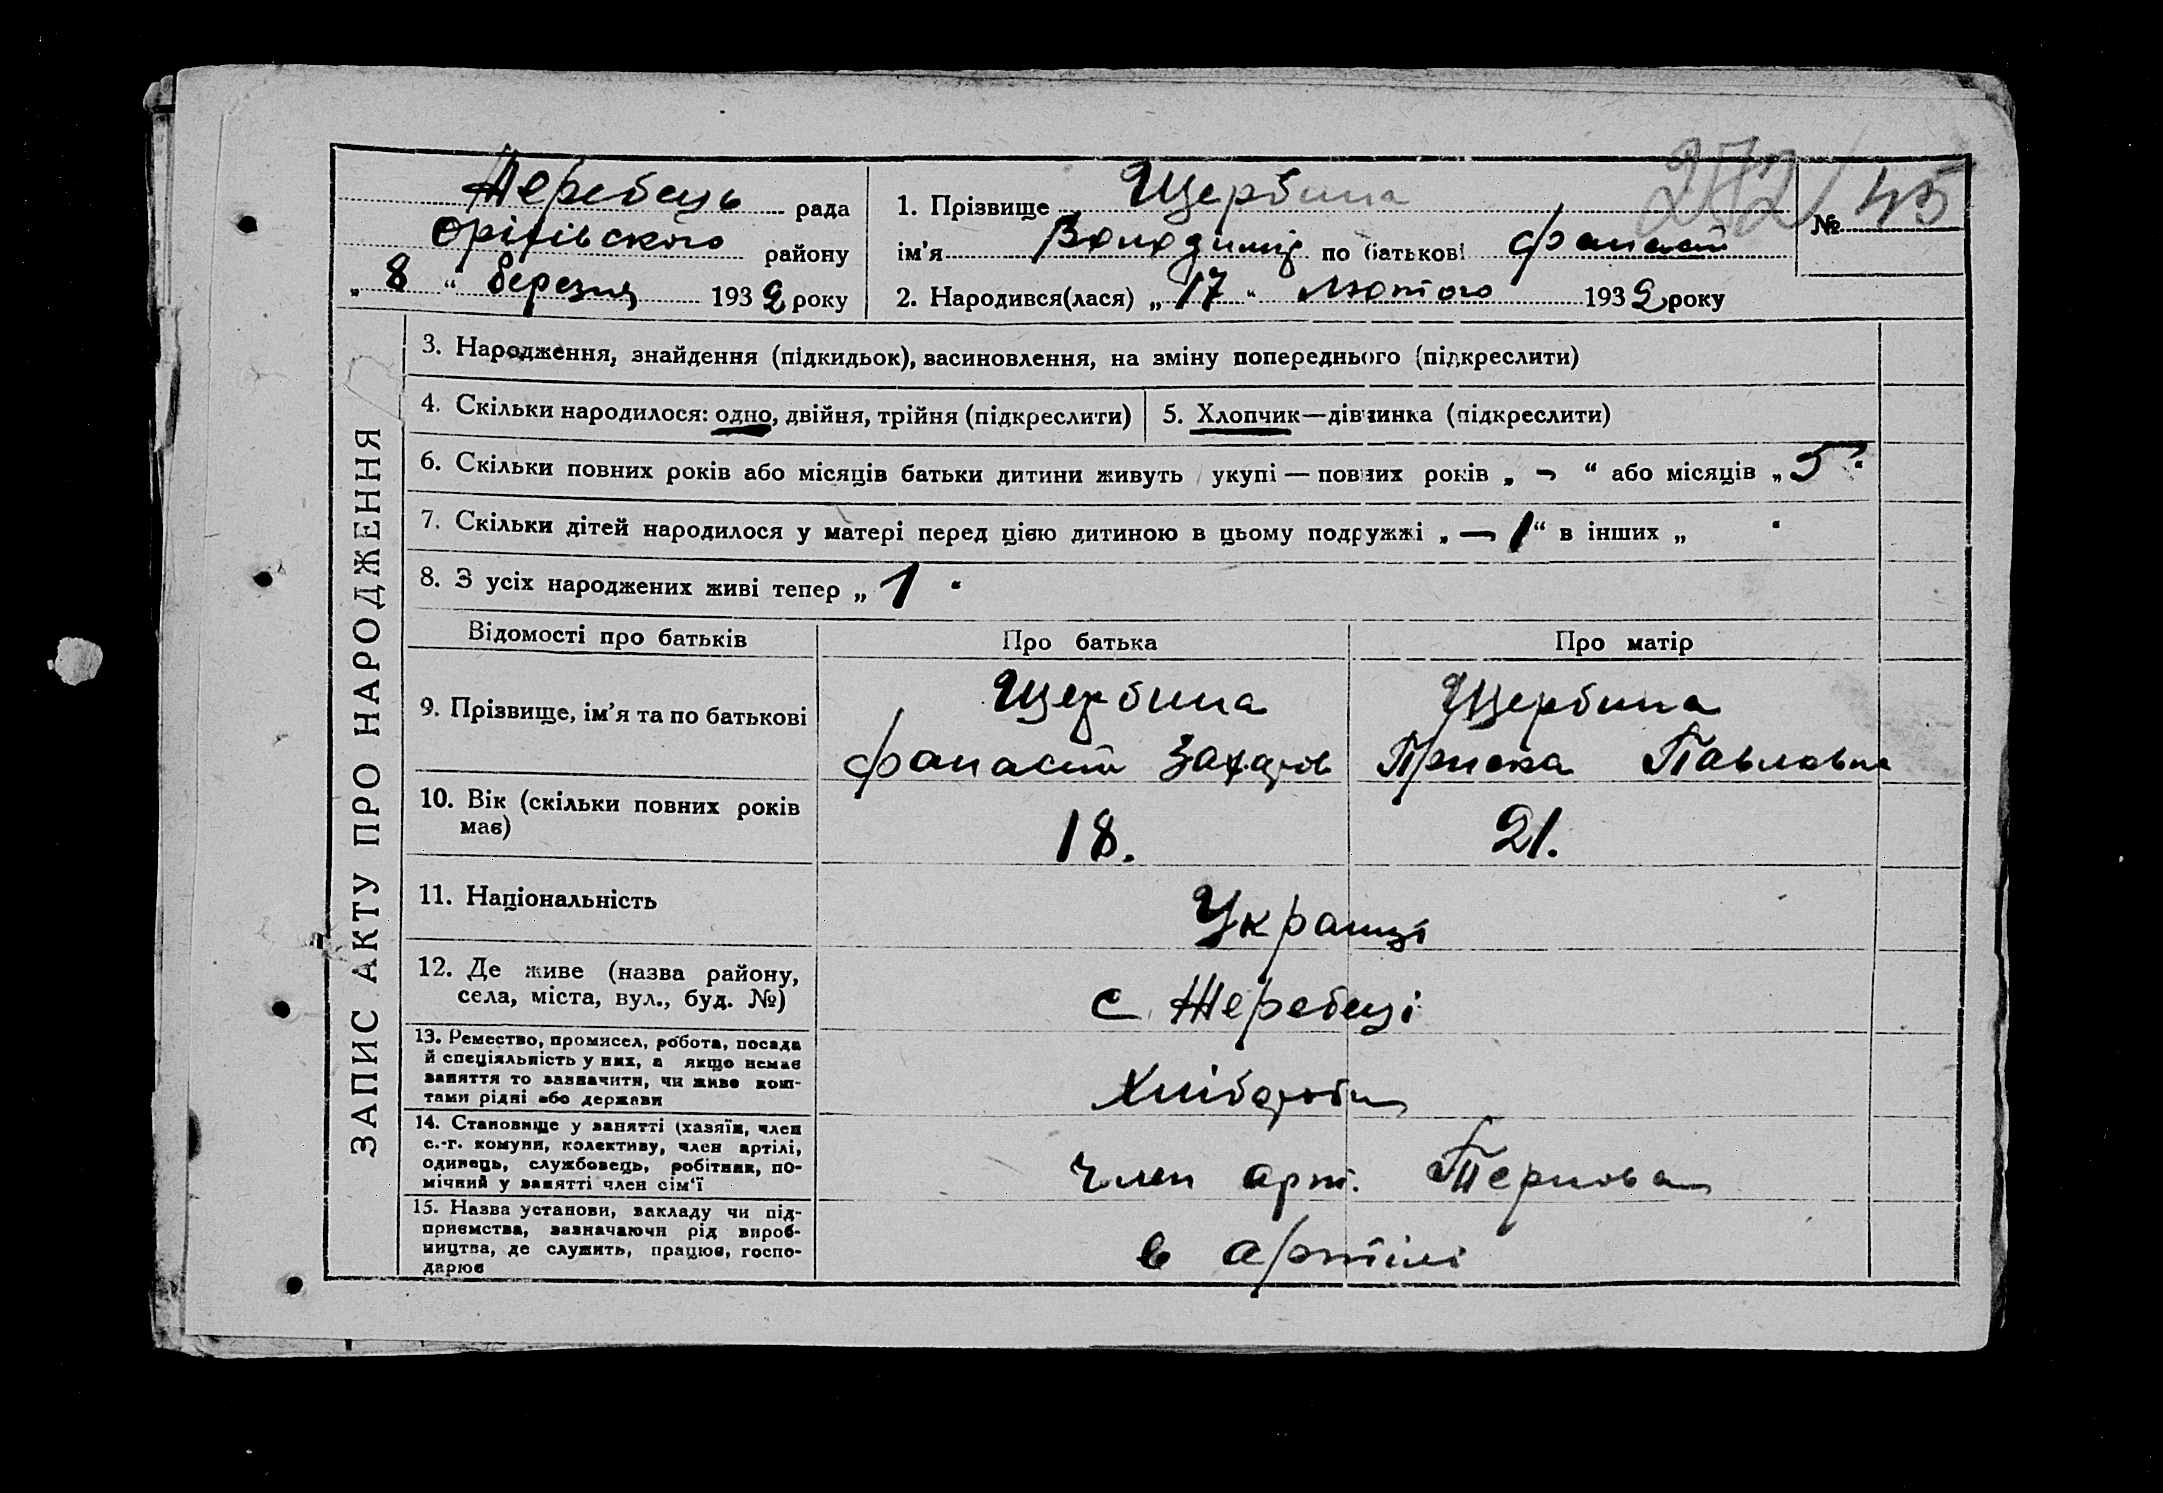 ЗАПИС АКТУ ПРО НАРОДЖЕННЯ
Жеребець рада
Оріхівського району
„ 8 “ березня 1932 року
1. Прізвище Щербина
ім'я Володимір по батькові Фанасій
2. Народився(лася) „ 17 “ Лютого 1932 року
272/
№ 45
3. Народження, знайдення (підкидьок), васиновлення, на зміну попереднього (підкреслити)
4. Скільки народилося: одно, двійня, трійня (підкреслити)
5. Хлопчик—дівчинка (підкреслити)
6. Скільки повних років або місяців батьки дитини живуть укупі — повних років „ – “ або місяців „ 5 “
7. Скільки дітей народилося у матері перед цією дитиною в цьому подружжі „ – 1 “ в інших „ “
8. З усіх народжених живі тепер „ 1 “
Відомості про батьків Про батька Про матір
9. Прізвище, ім'я та по батькові
Щербина
Фанасій Захаров
Щербина
Приска Павловна
10. Вік (скільки повних років має)
18. 21.
11. Національність
Українці
12. Де живе (назва району, села, міста, вул., буд. №)
с Жеребеці
13. Ремество, промисел, робота, посада
й спеціяльність у них, а якщо немає
заняття то зазначити, чи живе кош-
тами рідні або держави
Хліборобы
14. Становище у занятті (хазяїн, член
с.-г. комуни, колективу, член артілі,
одинець, службовець, робітник, по-
мічний у занятті член сім'ї
Член арт. Тернова
15. Назва установи, закладу чи під-
приємства, зазначаючи рід вироб-
ництва, де служить, працює, госпо-
дарює
в артілі